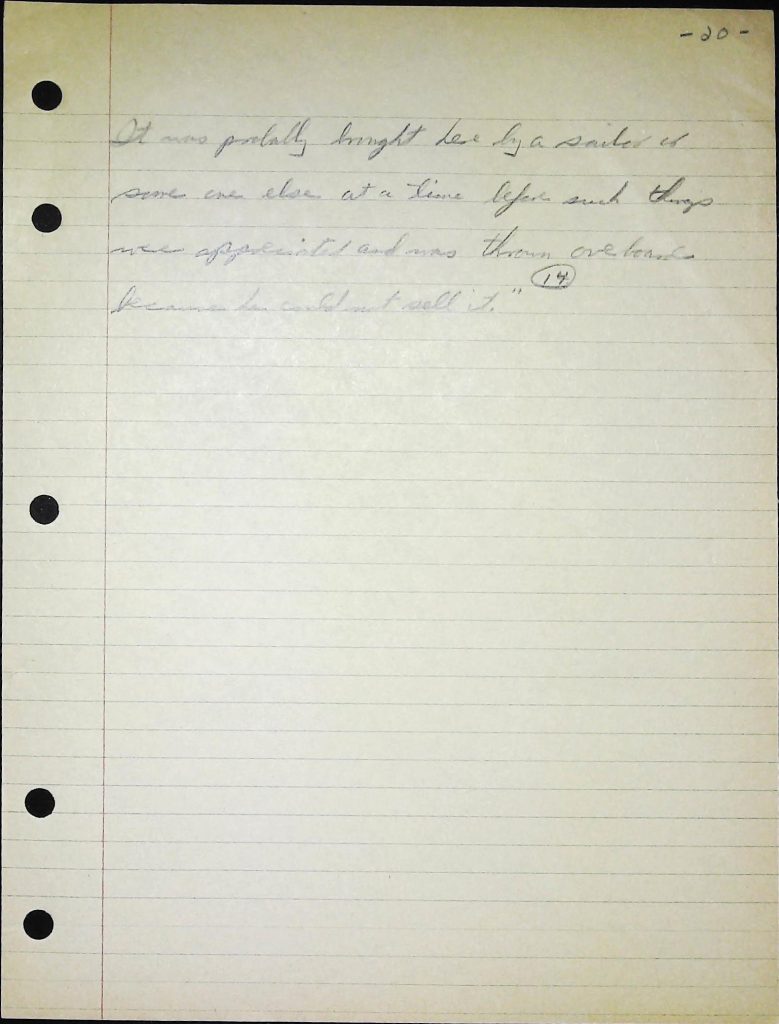 -20-
It was probably brought here by a sailor or
some one else at a time before such things
were appreciated and was thrown overboard
because he could not sell it." (14)